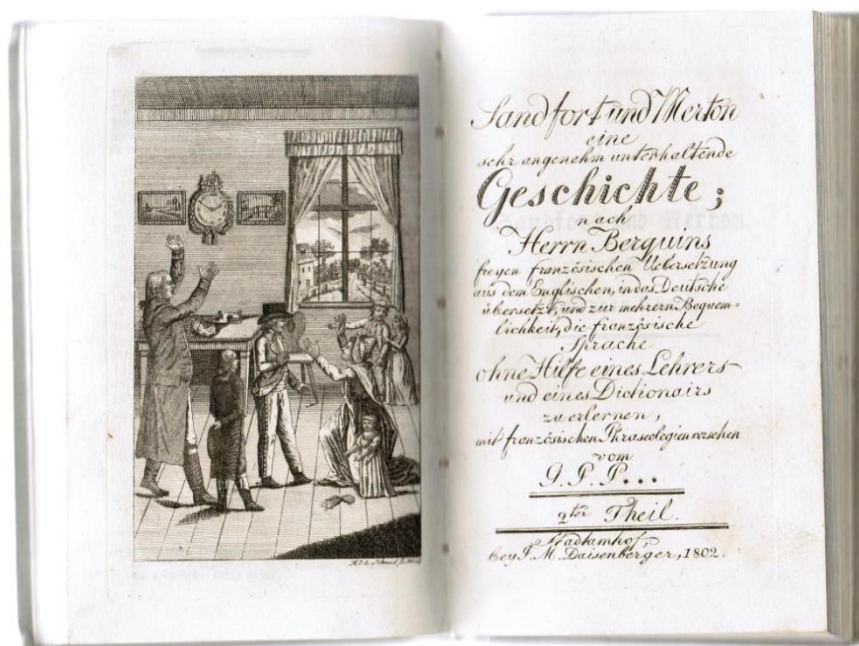 Sandfort und Merton
eine
sehr angenehm unterhaltende
Geschichte;
nach
Herrn Berquins
freyen französischen Uebersetzung
aus dem Englischen, in das Deutsche
übersetzt, und zur mehrern Bequem-
lichkeit, die französische
Sprache
ohne Hilfe eines Lehrers
und eines Dictionairs
zu erlernen,
mit französischen Phraseologien versehen
vom
J. P. P...
2ter Theil.
Stadtamhof,
bey J. M. Daisenberger, 1802.